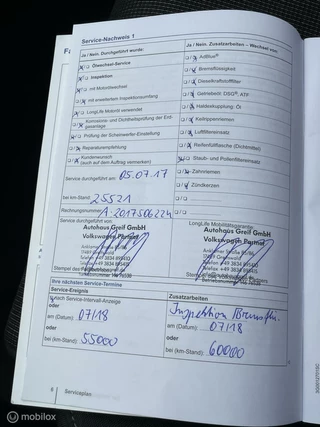 Service-Nachweis 1
Ja / Nein. Durchgeführt wurde:
Ölwechsel-Service
Inspektion
mit Motorölwechsel
mit erweitertem Inspektionsumfang
LongLife Motoröl verwendet
Korrosions- und Dichtheitsprüfung der Erd-
gasanlage
Prüfung der Scheinwerfer-Einstellung
Reparaturempfehlung
Kundenwunsch
(auch auf dem Auftrag vermerken)
Service durchgeführt am: 05.07.17
bei km-Stand: 25521
Rechnungsnummer:
Service durchgeführt von:
Autohaus Greif GmbH
Volkswagen Partner
Ja / Nein. Zusatzarbeiten – Wechsel von:
AdBlue®
Bremsflüssigkeit
Dieselkraftstofffilter
Getriebeöl: DSG®, ATF
Haldexkupplung: Öl
Keilrippenriemen
Luftfiltereinsatz
Reifenfülflasche (Dichtmittel)
Staub- und Pollenfiltereinsatz
Zahnriemen
Zündkerzen
LongLife Mobilitätsgarantie:
Autohaus Greif GmbH
Volkswagen Partner
Ihre nächsten Service-Termine
Service-Ereignis
nach Service-Intervall-Anzeige
oder
am (Datum): 07/18
oder
bei (km-Stand): 55000
Zusatzarbeiten
Inspektion
am (Datum): 07/18
oder
bei (km-Stand): 60000
8 Serviceplan
mobilox